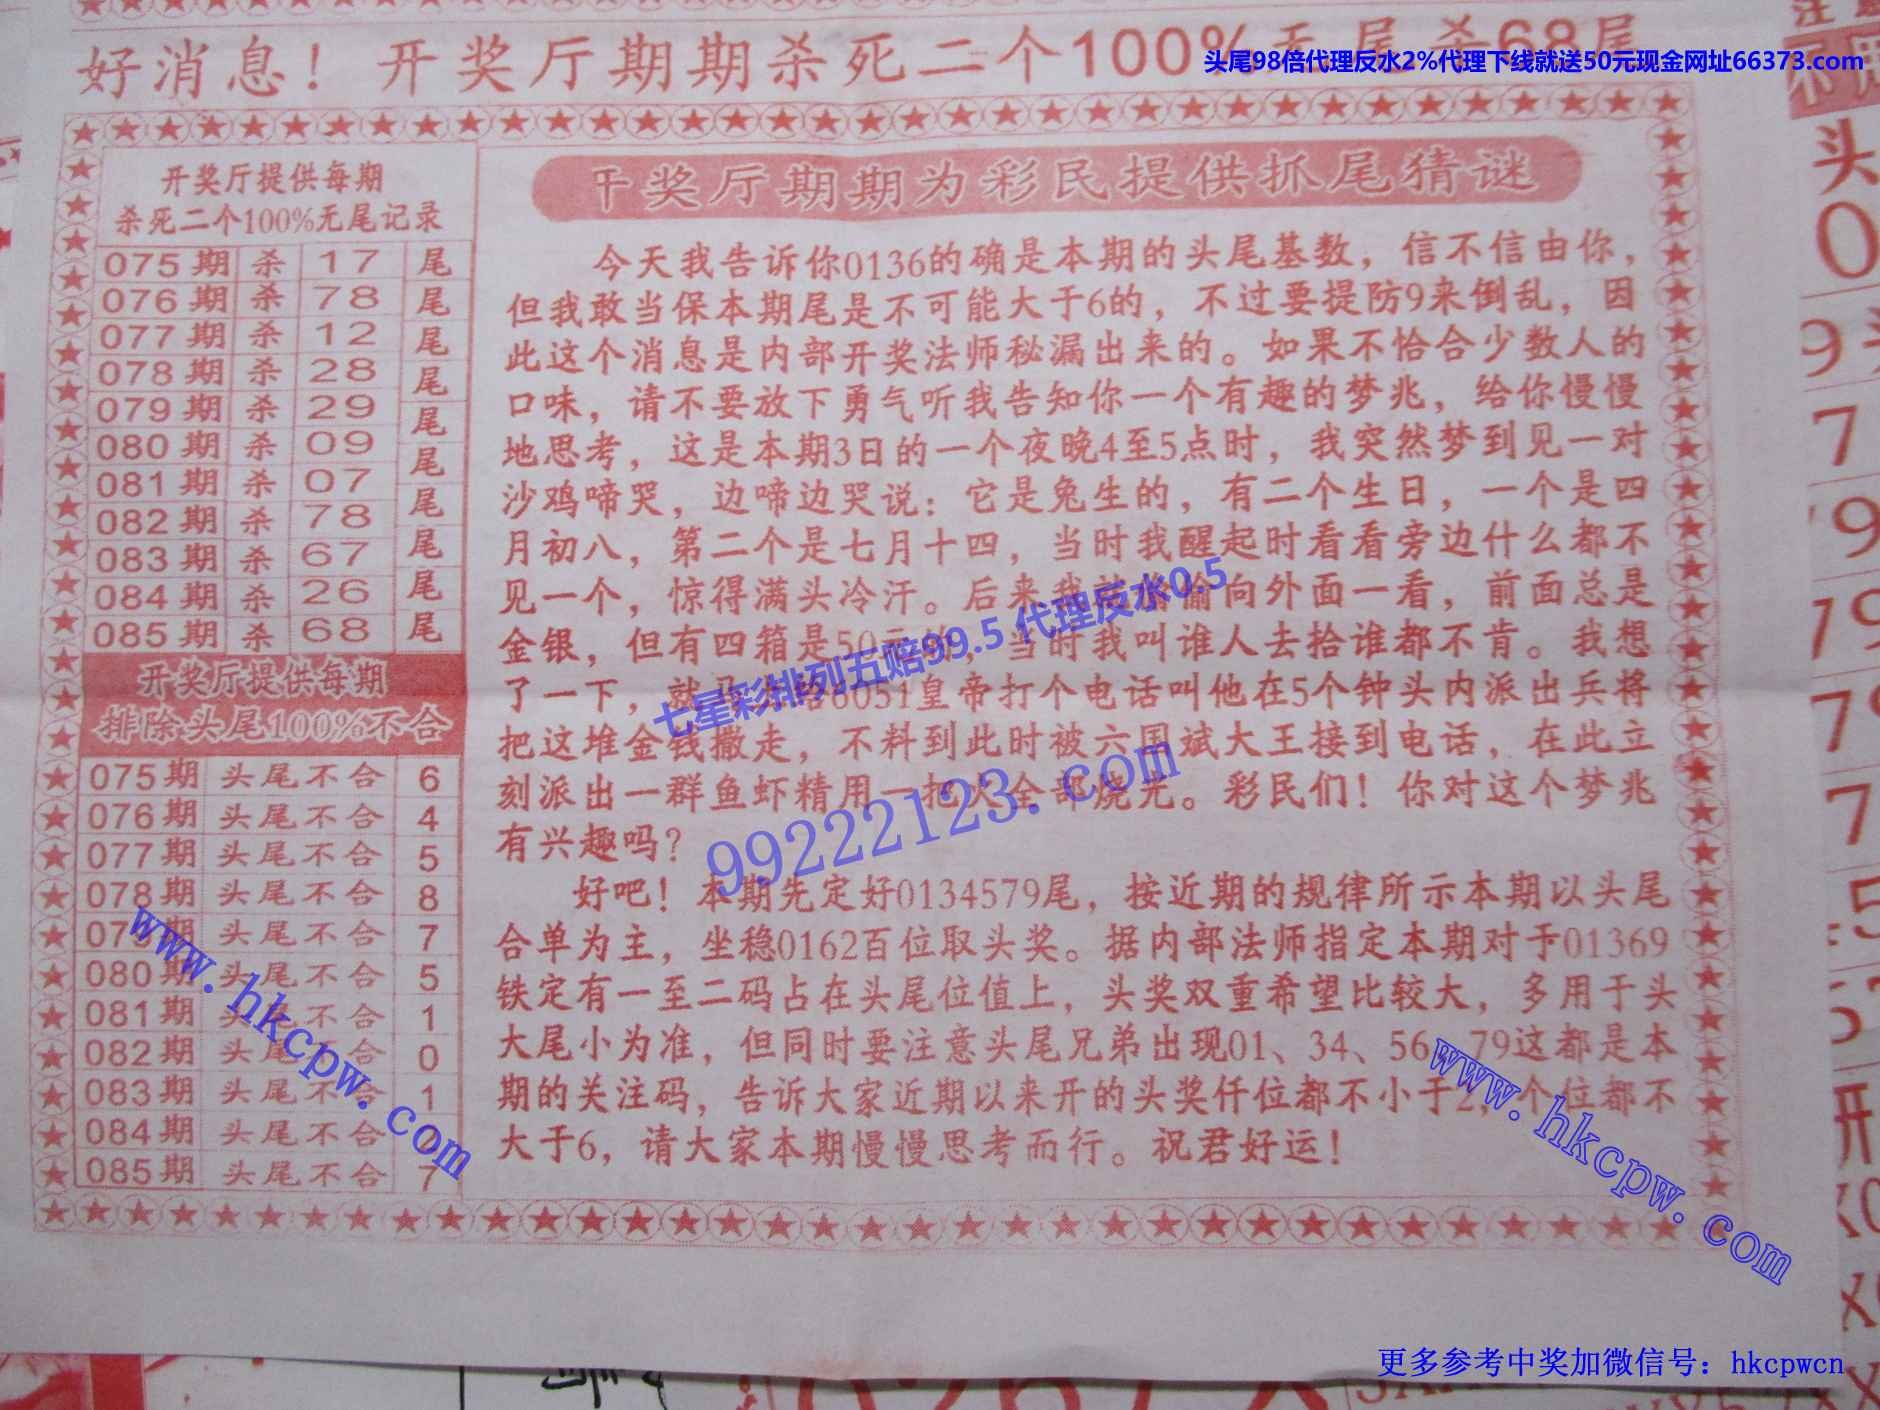 好消息！开奖厅期期杀死二个100%无尾杀68尾
头尾98倍代理反水2%代理下线就送50元现金网址66373.com
开奖厅提供每期
杀死二个100%无尾记录
075期 杀 17 尾
076期 杀 78 尾
077期 杀 12 尾
078期 杀 28 尾
079期 杀 29 尾
080期 杀 09 尾
081期 杀 07 尾
082期 杀 78 尾
083期 杀 67 尾
084期 杀 26 尾
085期 杀 68 尾
开奖厅提供每期
排除头尾100%不合
075期 头尾不合 6
076期 头尾不合 4
077期 头尾不合 5
078期 头尾不合 8
079期 头尾不合 7
080期 头尾不合 5
081期 头尾不合 1
082期 头尾不合 0
083期 头尾不合 1
084期 头尾不合
085期 头尾不合 7
奖厅期期为彩民提供抓尾猜谜
今天我告诉你0136的确是本期的头尾基数，信不信由你，
但我敢当保本期尾是不可能大于6的，不过要提防9来倒乱，因
此这个消息是内部开奖法师秘漏出来的。如果不恰合少数人的
口味，请不要放下勇气听我告知你一个有趣的梦兆，给你慢慢
地思考，这是本期3日的一个夜晚4至5点时，我突然梦到见一对
沙鸡啼哭，边啼边哭说：它是兔生的，有二个生日，一个是四
月初八，第二个是七月十四，当时我醒起时看看旁边什么都不
见一个，惊得满头冷汗。后来我就偷偷向外面一看，前面总是
金银，但有四箱是50元的，当时我叫谁人去拾谁都不肯。我想
了一下，就 6051皇帝打个电话叫他在5个钟头内派出兵将
把这堆金钱撒走，不料到此时被六国斌大王接到电话，在此立
刻派出一群鱼虾精用一把火全部烧光。彩民们！你对这个梦兆
有兴趣吗？
好吧！本期先定好0134579尾，按近期的规律所示本期以头尾
合单为主，坐稳0162百位取头奖。据内部法师指定本期对于01369
铁定有一至二码占在头尾位值上，头奖双重希望比较大，多用于头
大尾小为准，但同时要注意头尾兄弟出现01、34、56、79这都是本
期的关注码，告诉大家近期以来开的头奖仟位都不小于2，个位都不
大于6，请大家本期慢慢思考而行。祝君好运！
七星彩排列五赔99.5 代理反水0.5
99222123.com
www.hkcpw.com
www.hkcpw.com
更多参考中奖加微信号：hkcpwcn